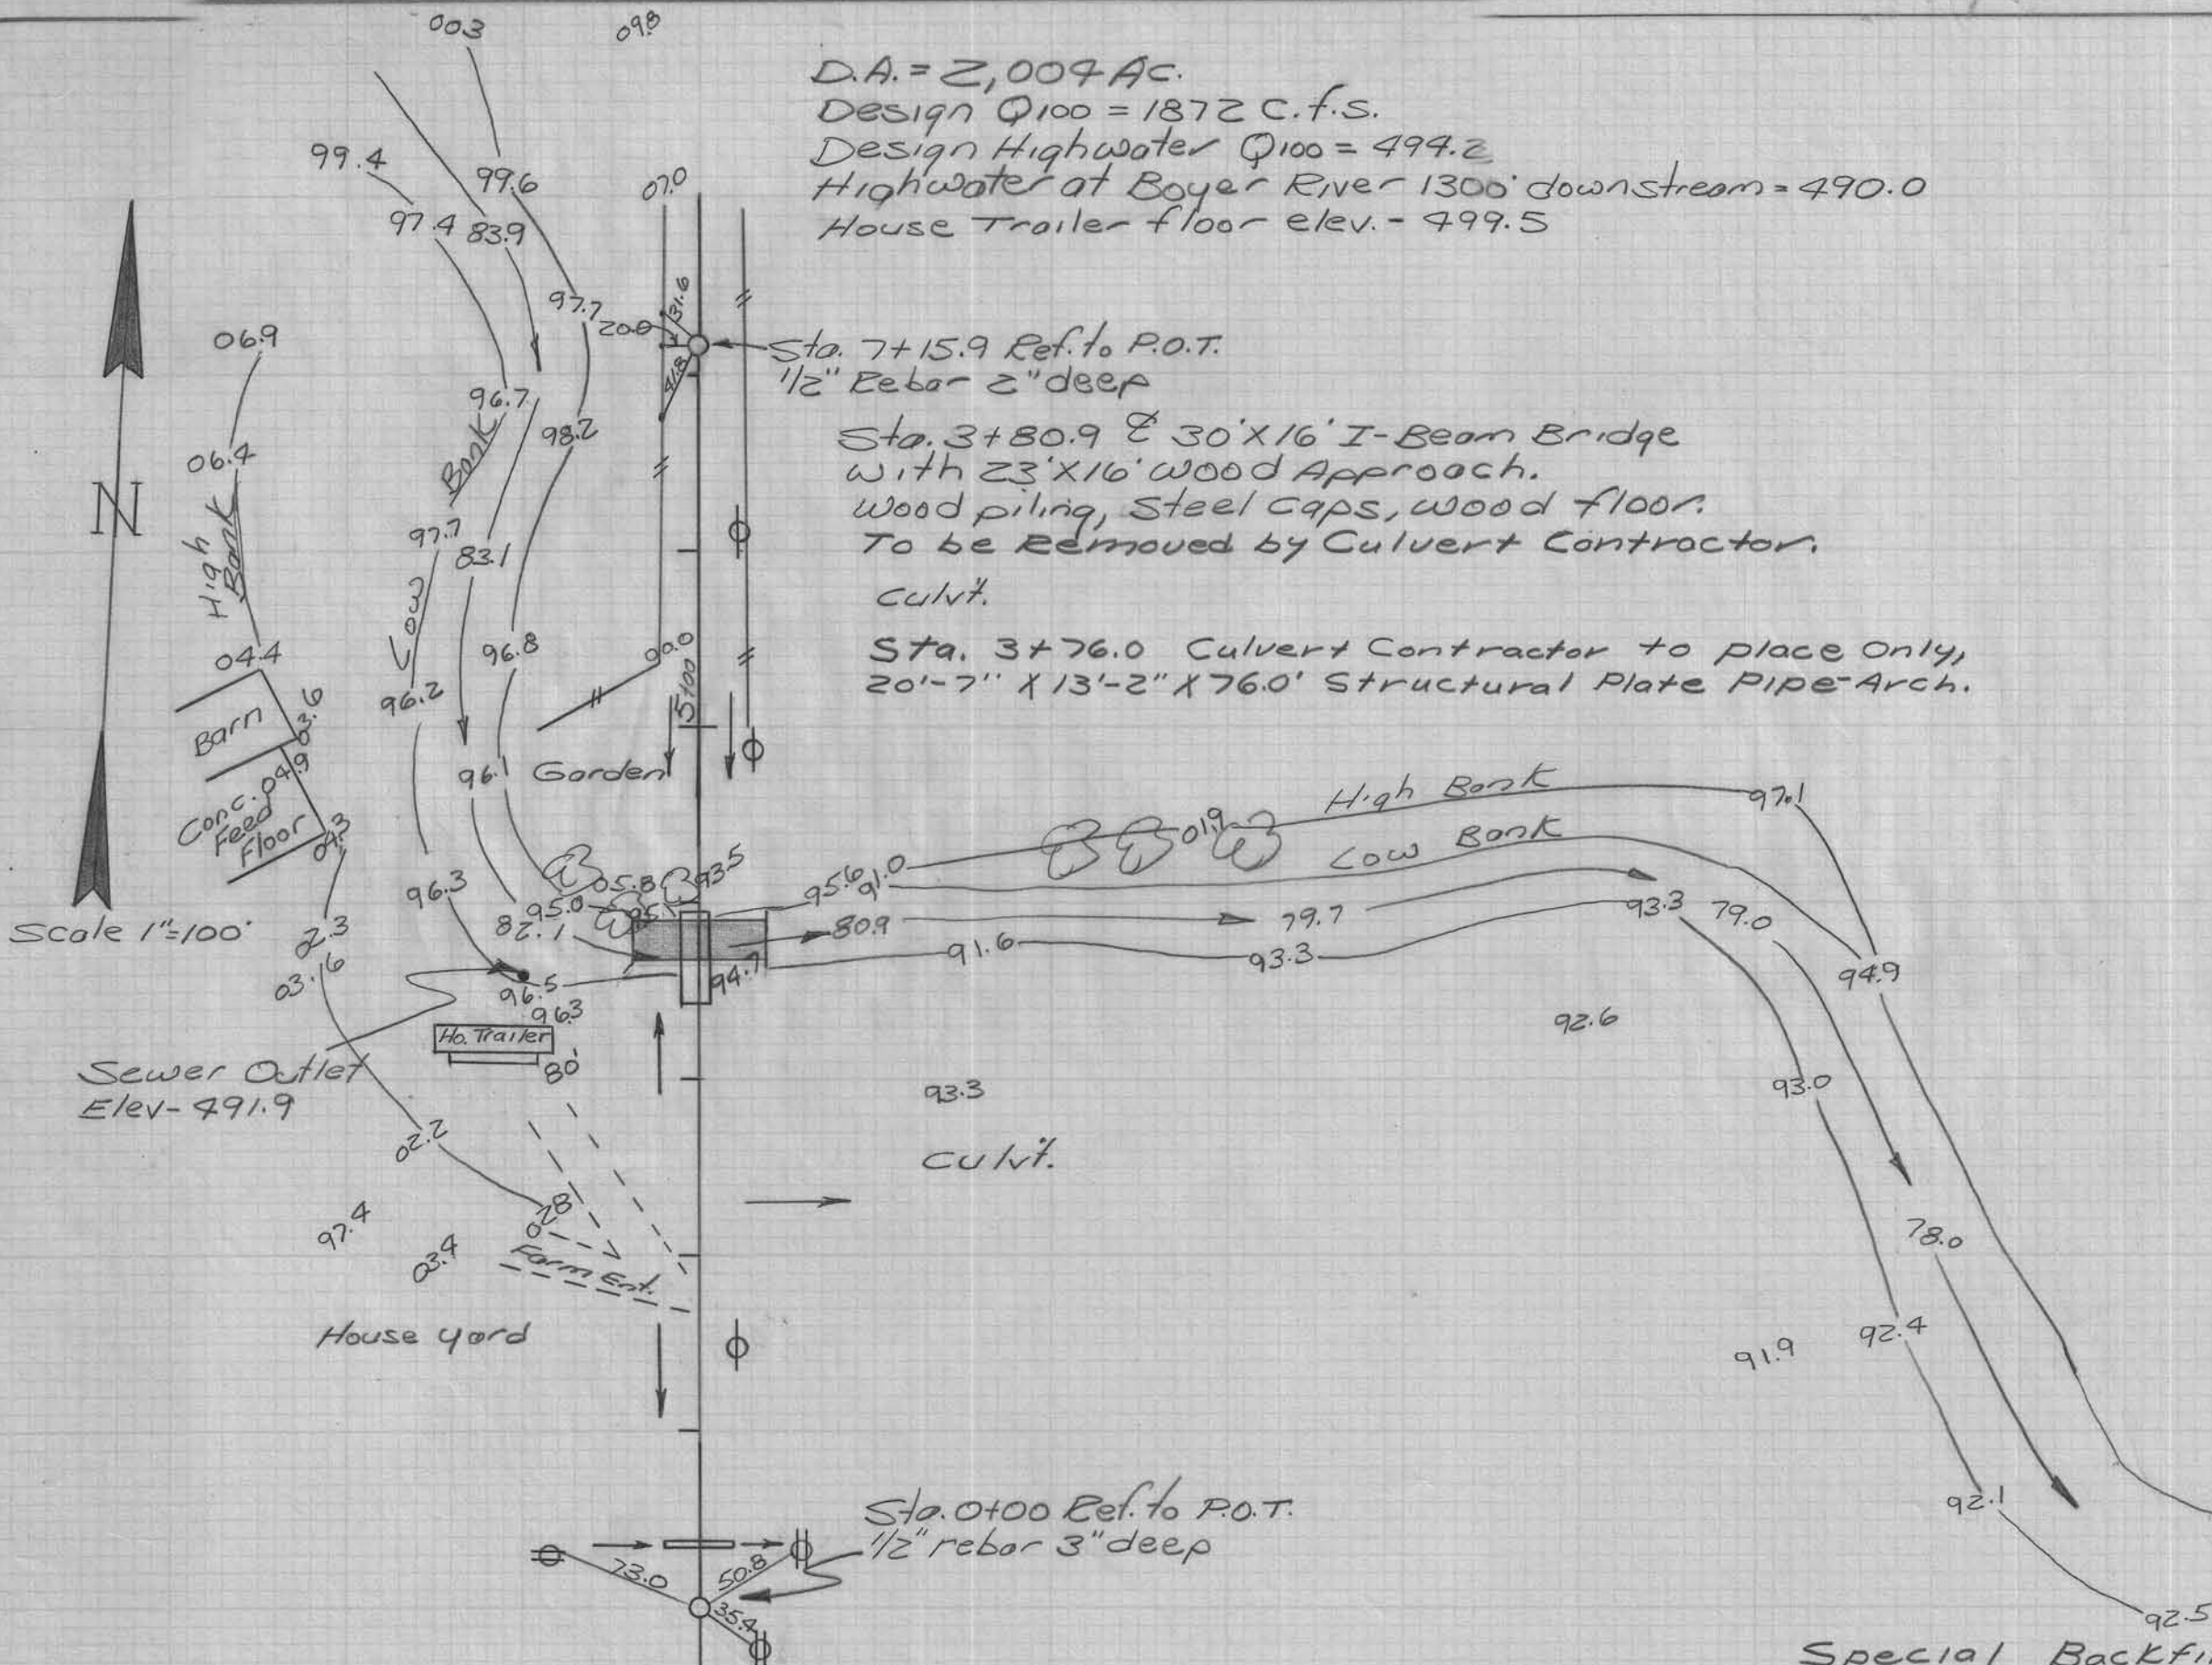 003
09.8
D.A. = 2,004 Ac.
Design Q100 = 1872 C.f.s.
Design Highwater Q100 = 494.2
Highwater at Boyer River 1300' downstream = 490.0
House Trailer floor elev. - 499.5
99.4
99.6
07.0
97.4 83.9
97.7
31.6
20.0
41.8
Sta. 7+15.9 Ref. to P.O.T.
1/2" Rebar 2" deep
06.9
96.7
98.2
06.4
High
Bank
Low
Bank
N
Sta. 3+80.9 ℄ 30'X16' I-Beam Bridge
with 23'X16' Wood Approach.
Wood piling, Steel Caps, wood floor.
To be Removed by Culvert Contractor.
97.7
83.1
Culv't.
96.8
00.0
5+00
Sta. 3+76.0 Culvert Contractor to place Only,
20'-7" X 13'-2" X 76.0' Structural Plate Pipe-Arch.
04.4
96.2
Barn
03.6
04.9
Conc.
Feed
Floor
04.3
96.1
Garden
High Bank
97.1
01.9
Low Bank
96.3
05.8
93.5
95.6
91.0
95.0
95.1
82.1
80.9
79.7
93.3
79.0
Scale 1"=100'
02.3
03.6
91.6
93.3
94.9
94.7
96.5
96.3
Ho. Trailer
80'
92.6
Sewer Outlet
Elev- 491.9
93.3
93.0
02.2
Culv't.
97.4
02.8
03.4
Farm Ent.
78.0
House yard
91.9
92.4
92.1
Sta. 0+00 Ref. to P.O.T.
1/2" rebar 3" deep
73.0
50.8
35.4
92.5
Special Backfi